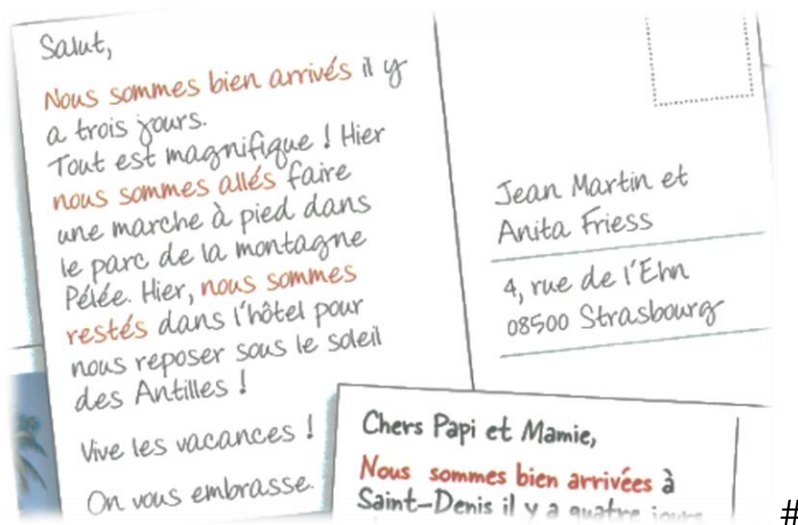 Salut,
Nous sommes bien arrivés il y
a trois jours.
Tout est magnifique ! Hier
nous sommes allés faire
une marche à pied dans
le parc de la montagne
Pélée. Hier, nous sommes
restés dans l'hôtel pour
nous reposer sous le soleil
des Antilles !
Vive les vacances !
On vous embrasse.
Jean Martin et
Anita Friess
4, rue de l'Ehn
08500 Strasbourg
Chers Papi et Mamie,
Nous sommes bien arrivées à
Saint-Denis il y a quatre jours
#